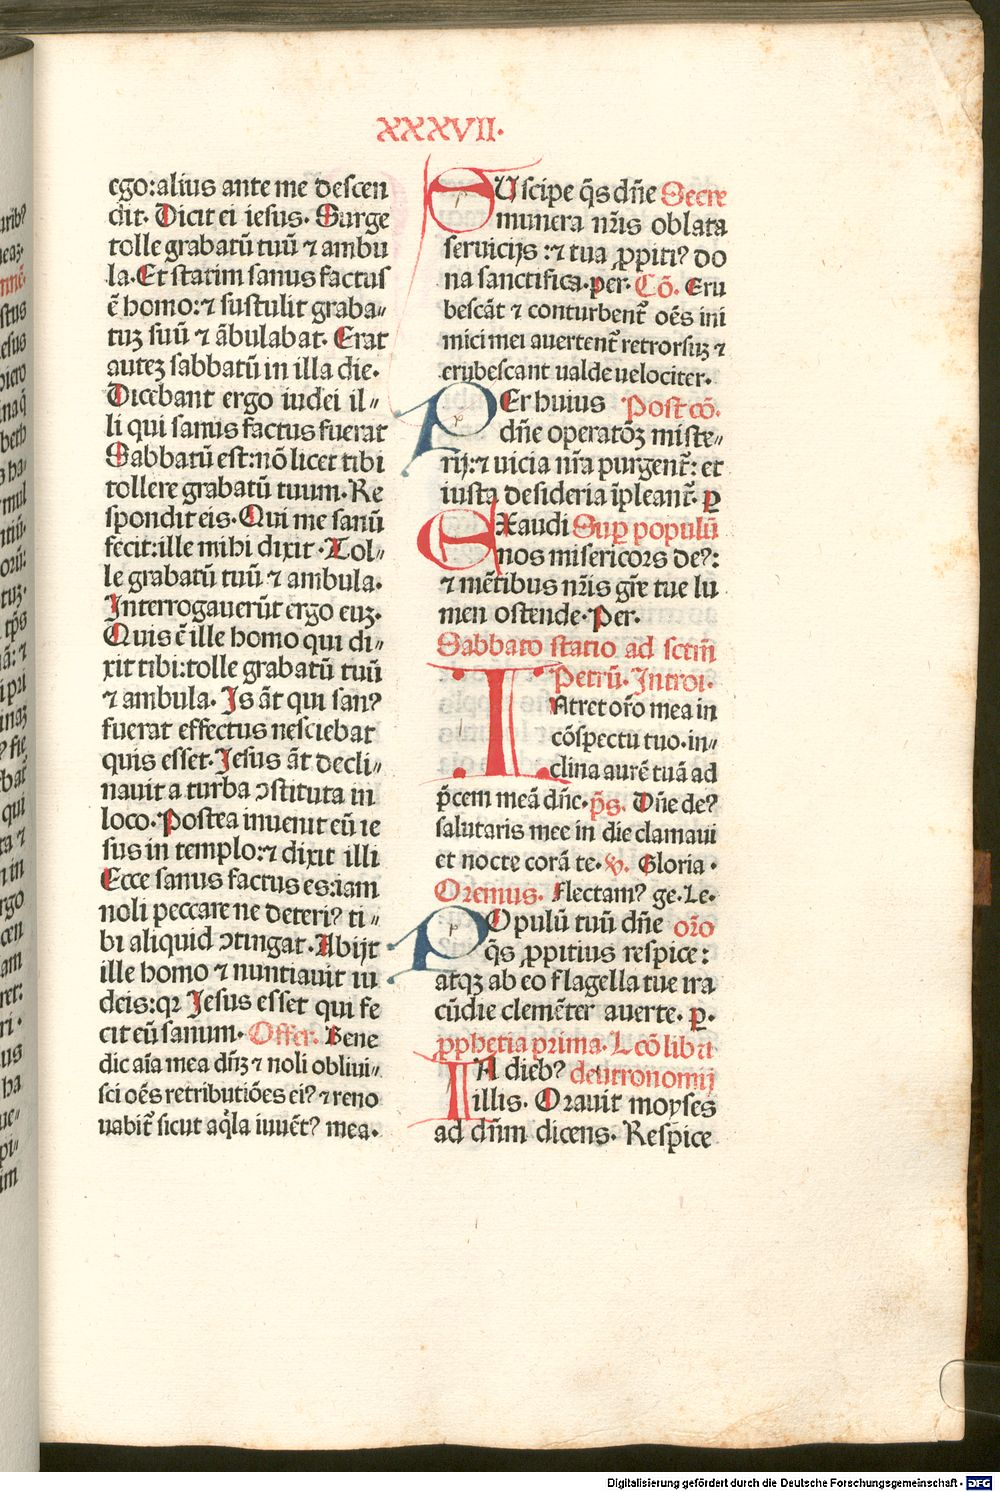 XXXVII.
ego:alius ante me descen
dit. Dicit ei iesus. Surge
tolle grabatū tuū ⁊ ambu
la. Et statim sanus factus
ē homo:⁊ sustulit graba„
tuꝫ suū ⁊ ābulabat. Erat
auteꝫ sabbatū in illa die.
Dicebant ergo iudei il„
li qui sanus factus fuerat
Sabbatū est:nō licet tibi
tollere grabatū tuum. Re
spondit eis. Qui me sanū
fecit:ille mihi dixit. Tol„
le grabatū tuū ⁊ ambula.
Interrogauerūt ergo euꝫ.
Quis ē ille homo qui di„
xit tibi:tolle grabatū tuū
⁊ ambula. Is āt qui sanꝰ
fuerat effectus nesciebat
quis esset. Jesus āt decli„
nauit a turba ꝯstituta in
loco. Postea inuenit eū ie
sus in templo:⁊ dixit illi
Ecce sanus factus es:iam
noli peccare ne deteriꝰ ti„
bi aliquid ꝯtingat. Abijt
ille homo ⁊ nuntiauit iu
deis:qꝛ Jesus esset qui fe
cit eū sanum. Offer. Bene
dic aīa mea dn̄ꝫ ⁊ noli obliui„
sci oēs retributiōes eiꝰ ⁊ reno
uabit̄ sicut aq̄la iuuētꝰ mea.
SUscipe q̄s dn̄e Secre
munera nr̄is oblata
seruicijs :⁊ tua ꝓpitiꝰ do
na sanctifica. per. Cō. Eru
bescāt ⁊ conturbent̄ oēs ini
mici mei auertent̄ retrorsuꝫ ⁊
erubescant ualde uelociter.
PEr huius Post cō.
dn̄e operatōꝫ miste„
rij:⁊ uicia nr̄a purgent̄: et
iusta desideria īpleant̄. ꝑ
EXaudi Suꝑ populū
nos misericors deꝰ:
⁊ mētibus nr̄is gr̄e tue lu
men ostende. Per.
Sabbato statio ad sctm̄
Petrū. Introi.
INtret or̄o mea in
cōspectu tuo.in„
clina aurē tuā ad
p̄cem meā dn̄e. p̄s. Dn̄e deꝰ
salutaris mee in die clamaui
et nocte corā te. v. Gloria.
Oremus. Flectamꝰ ge. Le.
POpulū tuū dn̄e or̄o
q̄s ꝓpitius respice:
atqꝫ ab eo flagella tue ira
cūdie clemēter auerte. ꝑ.
ꝓphetia prima. Lecō lib̄ii
IN diebꝰ deutronomij
illis. Orauit moyses
ad dn̄m dicens. Respice
Digitalisierung gefördert durch die Deutsche Forschungsgemeinschaft - DFG